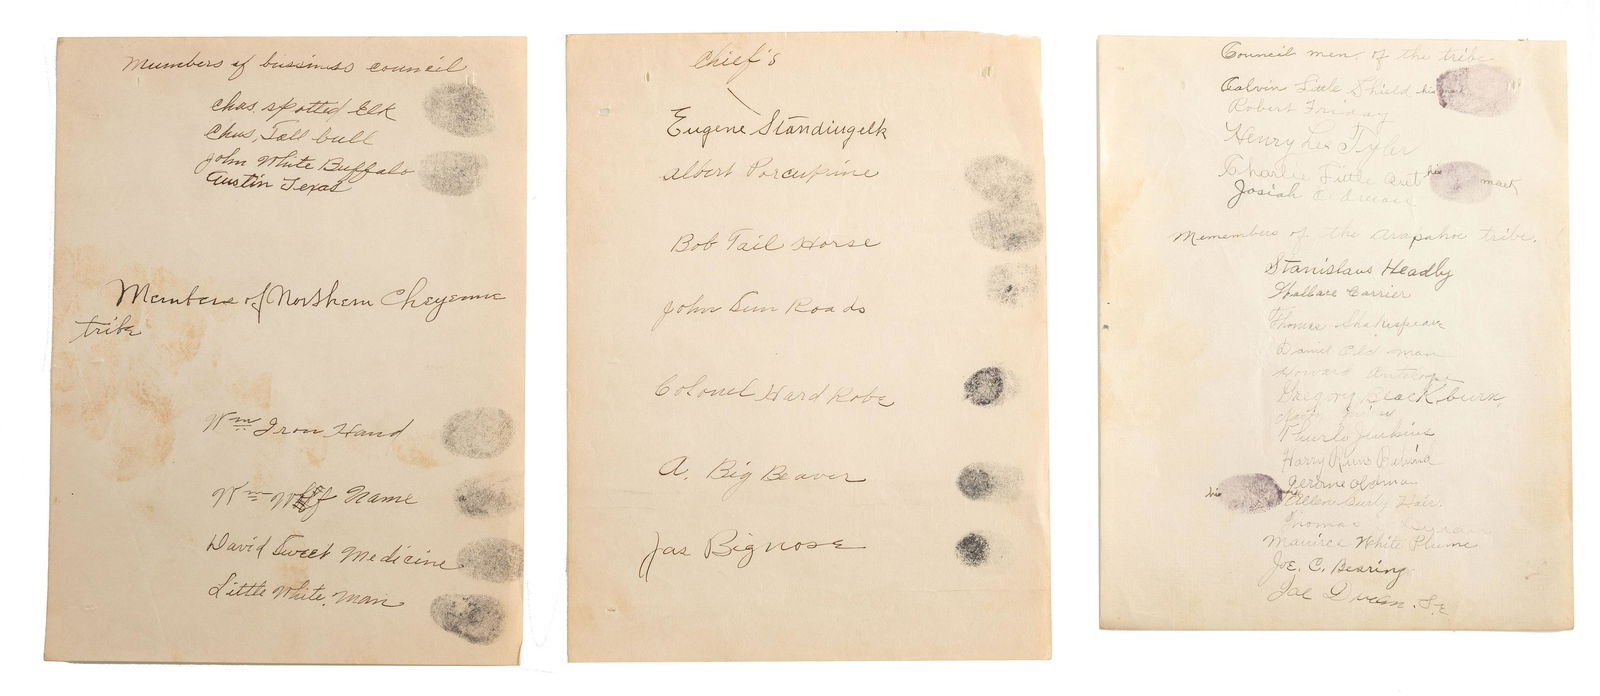 Mumbers of bussiniss council
Chas. spotted Elk
Chas. Tall bull
John White Buffalo
Austin Texas
Members of Northern Cheyenne
tribe
Wm Iron Hand
Wm Name
David Sweet Medicine
Little White man
Chief's
Eugene Standingelk
Albert Porcupine
Bob Tail Horse
John Sun Roads
Colonel Hard Robe
A. Big Beaver
Jas Bignose
Council men of the tribe
Calvin Little Shield his mark
Robert Friday
Henry Lee Tyler
Charlie Little Ant his mark
Josiah Oldman
Memembers of the Arapahoe tribe.
Stanislaus Headly
Wallace Carrier
Thomas Shakespeare
Daniel Old man
Howard Antelope
Gregory Blackburn
Jenkins
Harry Runs Behind
Jerome Oldman
his Curly Hair.
Thomas
Maurice White Plume
Joe. C. Bearing
Joe